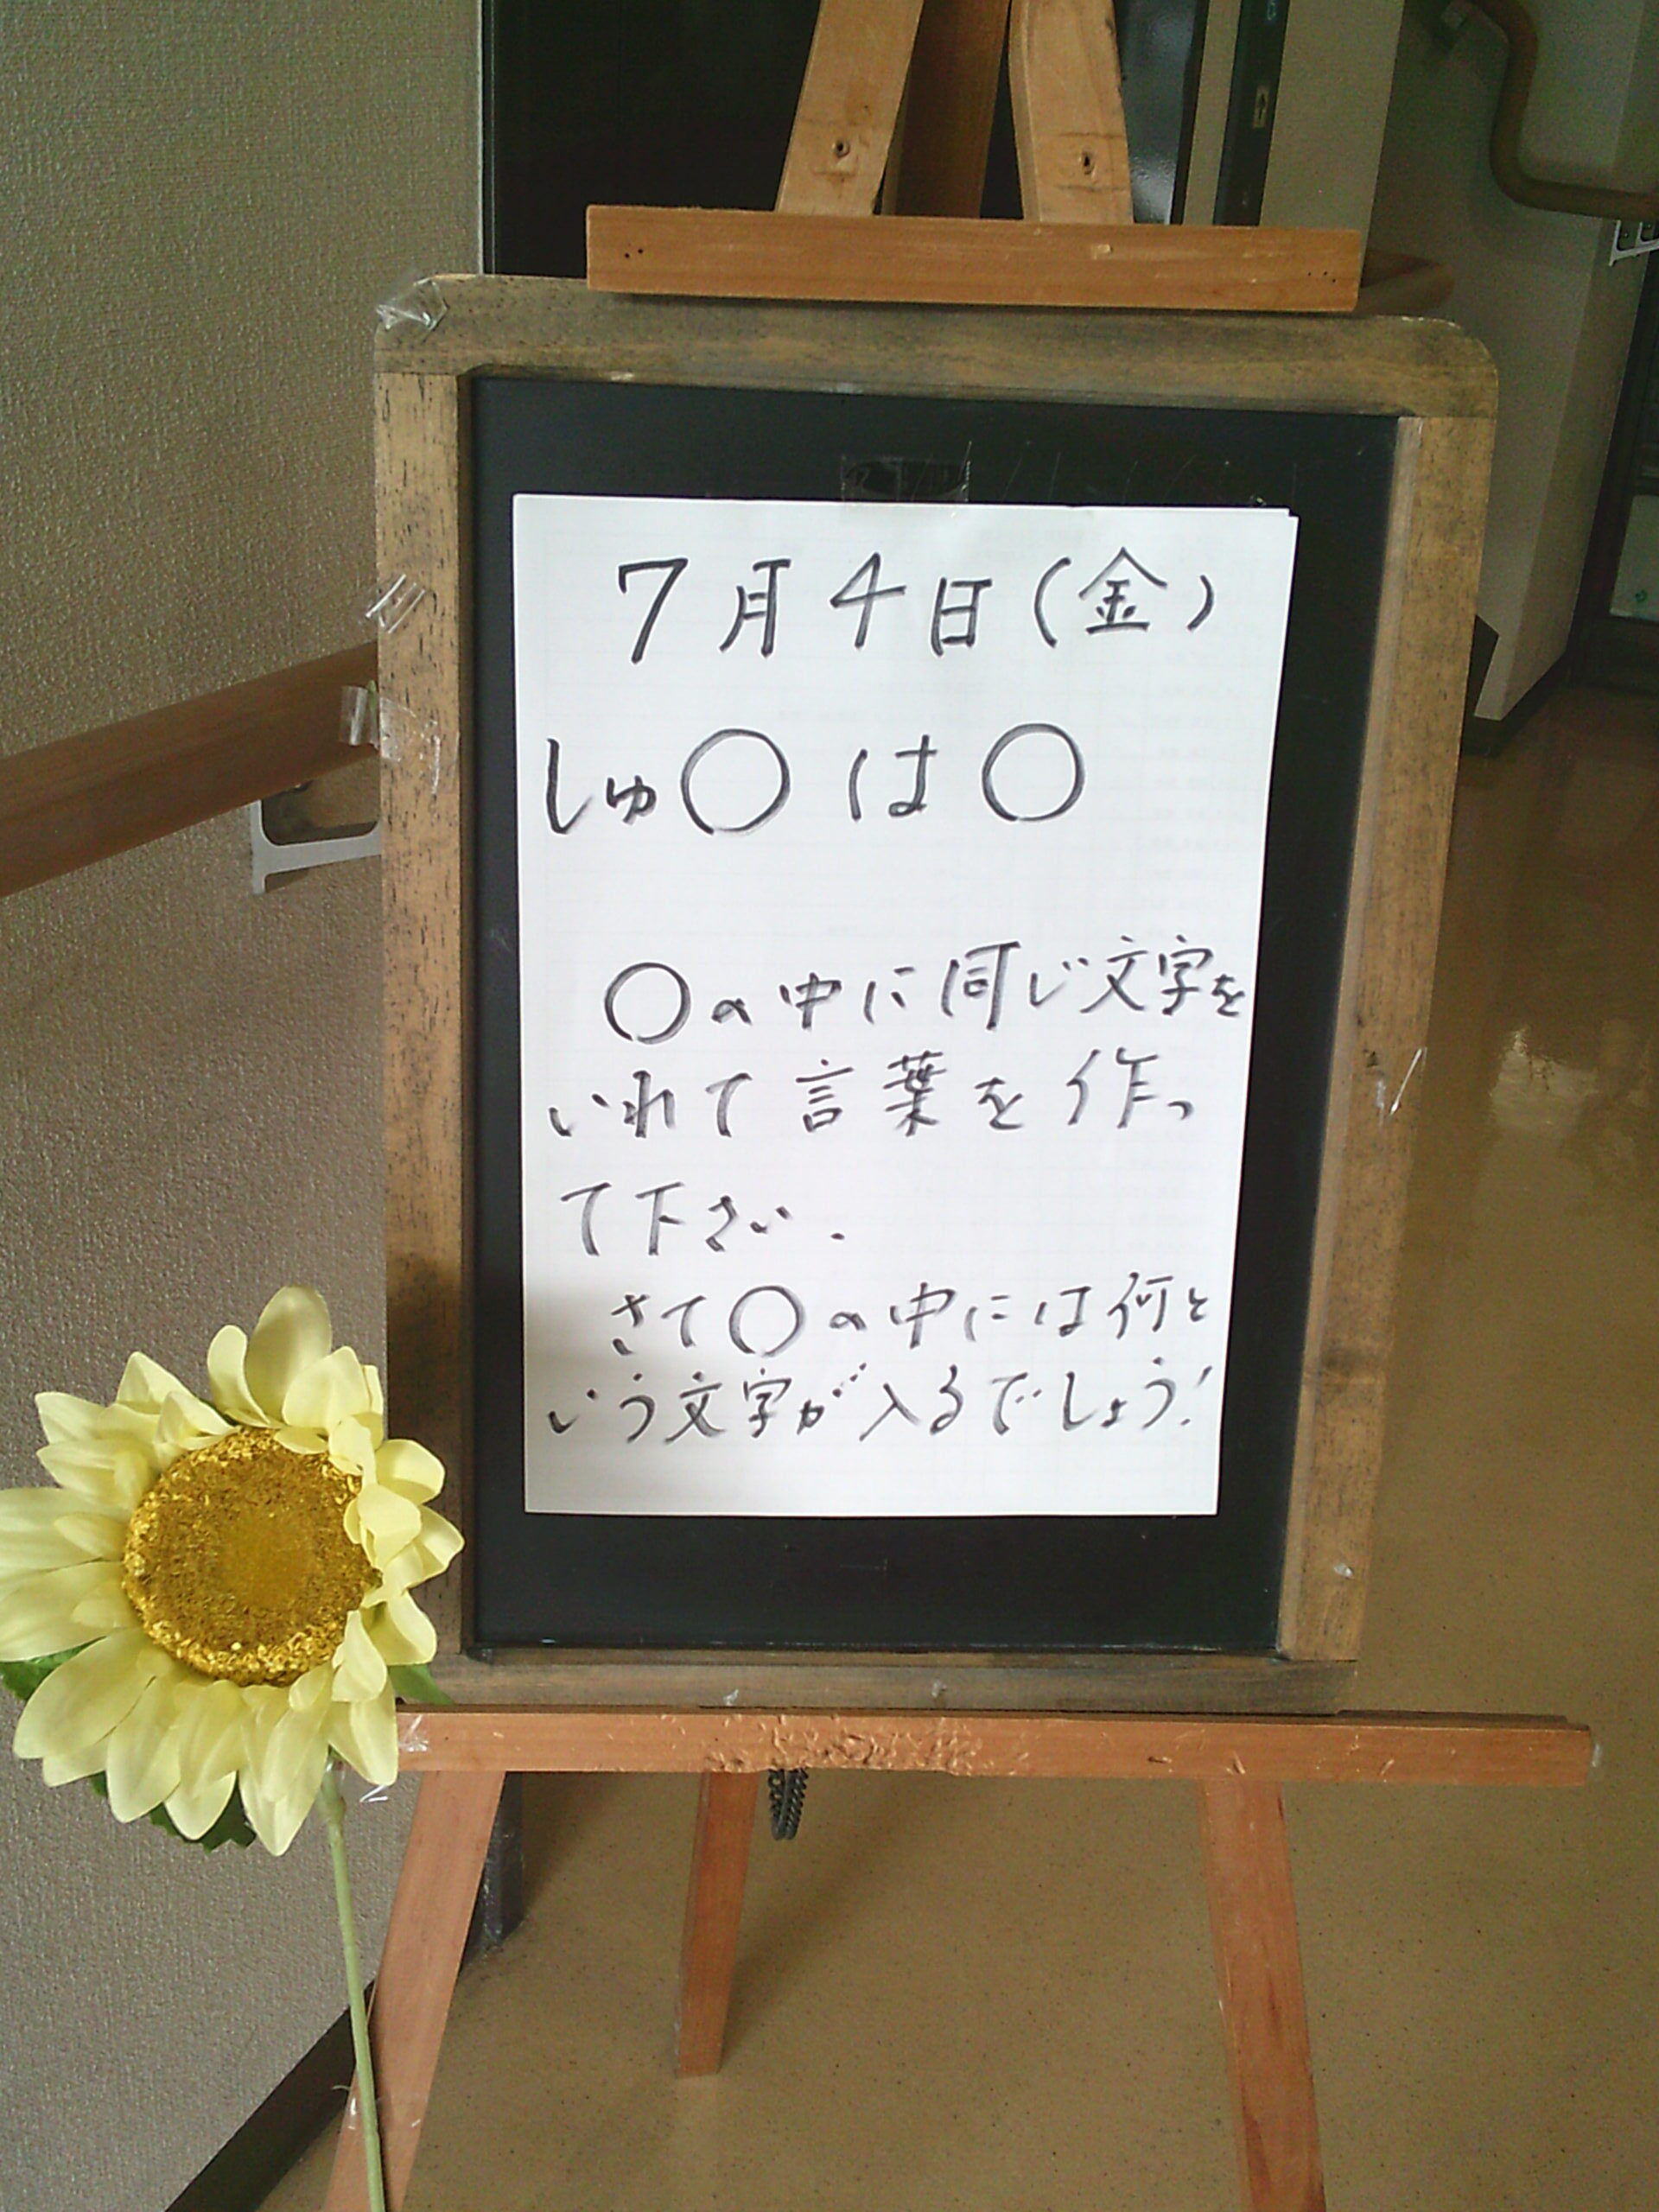 7月4日(金)
しゅ○は○
○の中に同じ文字を
いれて言葉を作っ
て下さい.
さて○の中には何と
いう文字が入るでしょう!